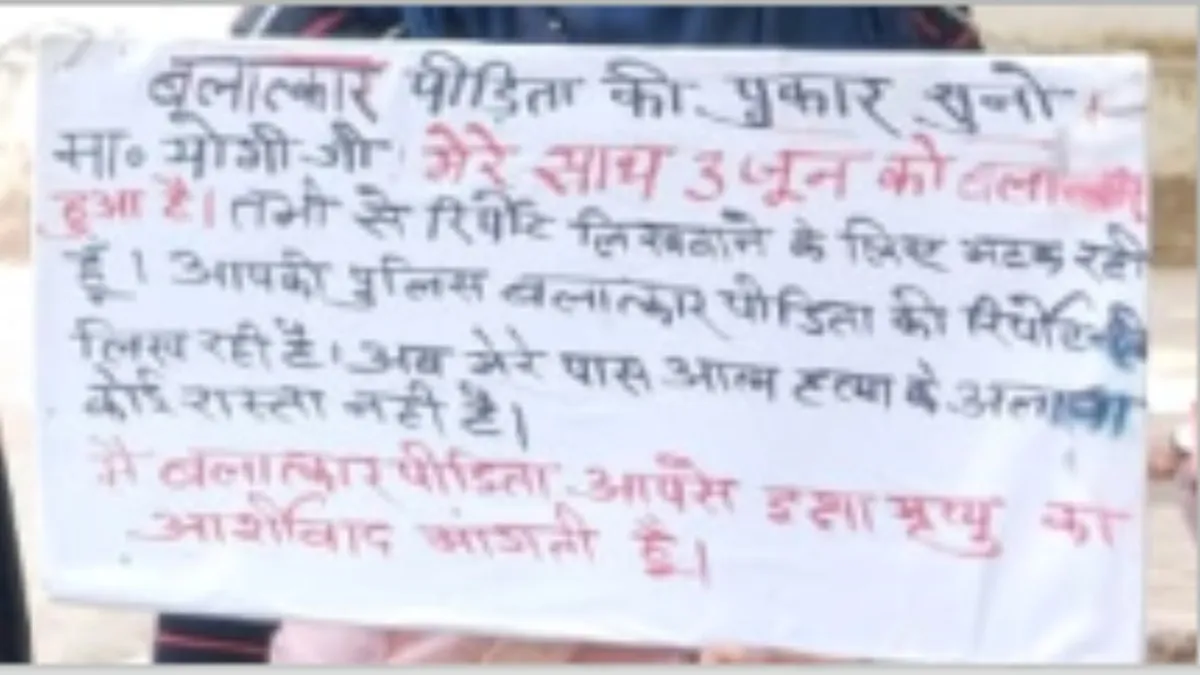 बलात्कार पीडिता की पुकार सुनो
मा० योगी जी मेरे साथ 3 जून को बलात्कार
हुआ है। तभी से रिर्पोट लिखवाने के लिए भटक रही
हूँ। आपकी पुलिस बलात्कार पीडिता की रिर्पोट नही
लिख रही है। अब मेरे पास आत्म हत्या के अलावा
कोई रास्ता नही है।
मै बलात्कार पीडिता आपसे इक्षा मृत्यु का
आर्शीवाद मांगती हूँ।